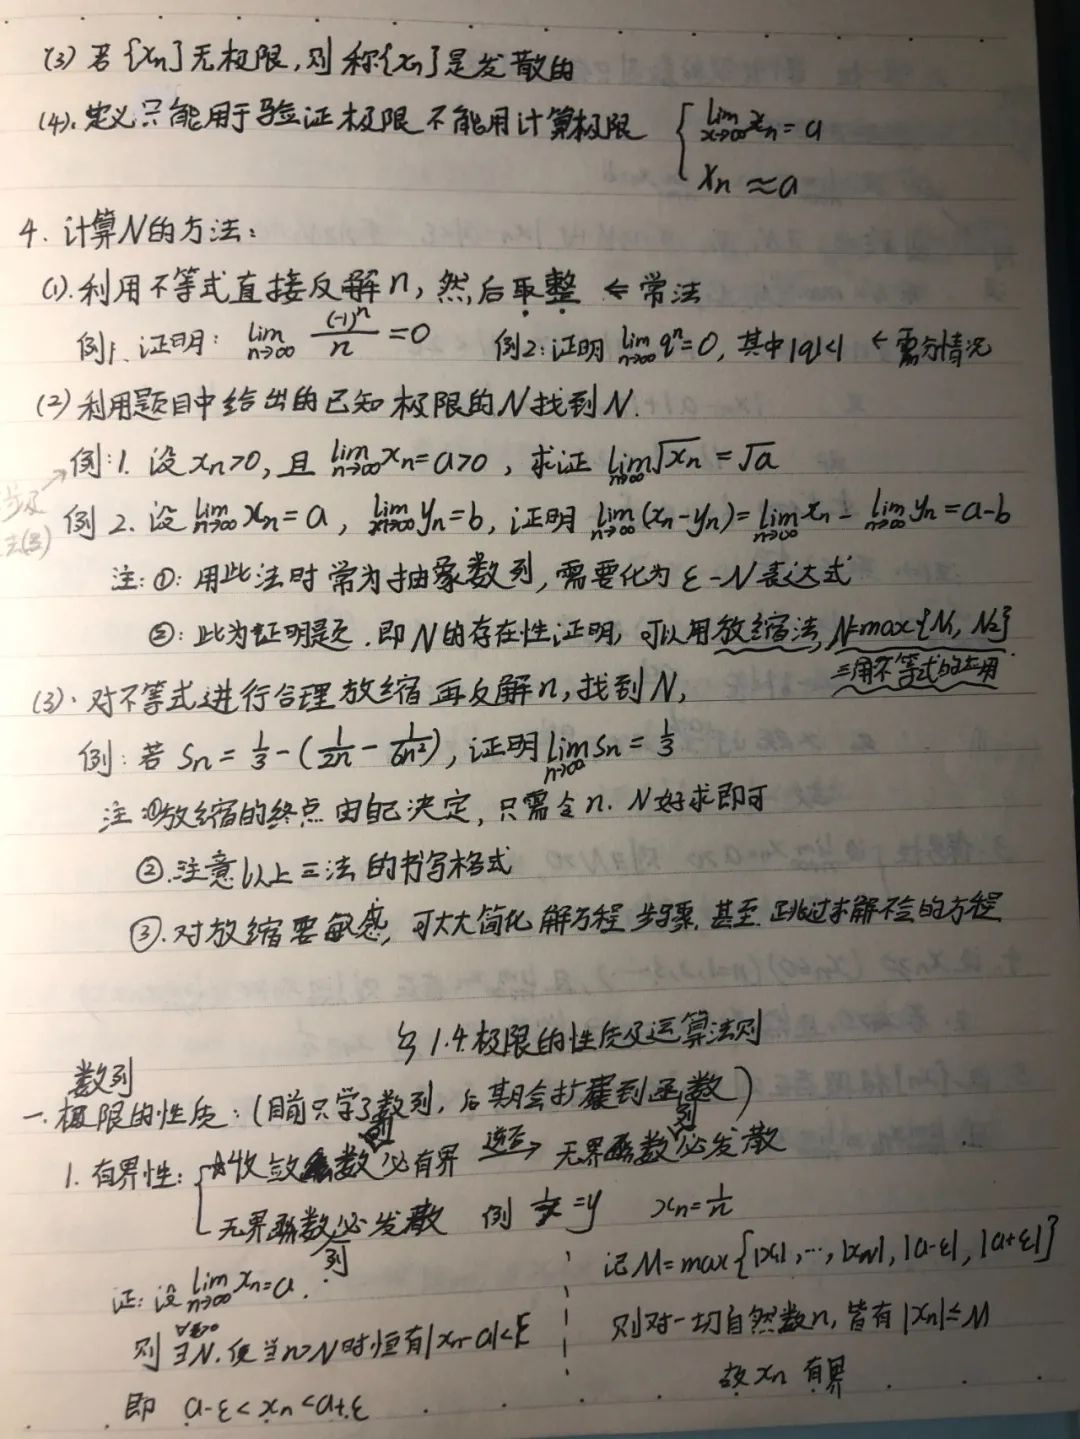 (3) 若{xn}无极限,则称{xn}是发散的
(4). 定义只能用于验证极限不能用计算极限 { lim x→∞ xn = a
xn ≈ a
4. 计算N的方法:
(1). 利用不等式直接反解n, 然后取整 ← 常法
例1. 证明: lim n→∞ (-1)^n/n = 0 例2: 证明 lim n→∞ q^n = 0, 其中|q|<1 ← 需分情况
(2) 利用题目中给出的已知极限的N找到N.
例:1. 设xn>0, 且 lim n→∞ xn = a>0, 求证 lim n→∞ √xn = √a
例2. 设 lim n→∞ xn = a, lim x→∞ yn = b, 证明 lim n→∞ (xn-yn) = lim n→∞ xn - lim n→∞ yn = a-b
注: ①: 用此法时常为抽象数列, 需要化为 ε-N 表达式
②: 此为证明题. 即N的存在性证明, 可以用放缩法, N=max{N1, N2}
三角不等式的应用
(3). 对不等式进行合理放缩再反解n, 找到N,
例: 若 Sn = 1/3 - (1/2n - 1/6n²), 证明 lim n→∞ Sn = 1/3
注:①放缩的终点由自己决定, 只需令n. N好求即可
②.注意以上三法的书写格式
③.对放缩要敏感, 可大大简化解方程步骤, 甚至跳过求解不会的方程
§1.4. 极限的性质及运算法则
数列
一. 极限的性质: (目前只学了数列, 后期会扩展到函数)
1. 有界性: { 收敛数列必有界 逆否→ 无界数列必发散
无界数列必发散 例 1/x = y xn = 1/n
证: 设 lim n→∞ xn = a.
则 ∀ε>0 ∃N. 使当n>N时恒有|xn-a|<ε
即 a-ε < xn < a+ε
记 M = max{|x1|, ···, |xN|, |a-ε|, |a+ε|}
则对一切自然数n, 皆有 |xn| ≤ M
故 xn 有界